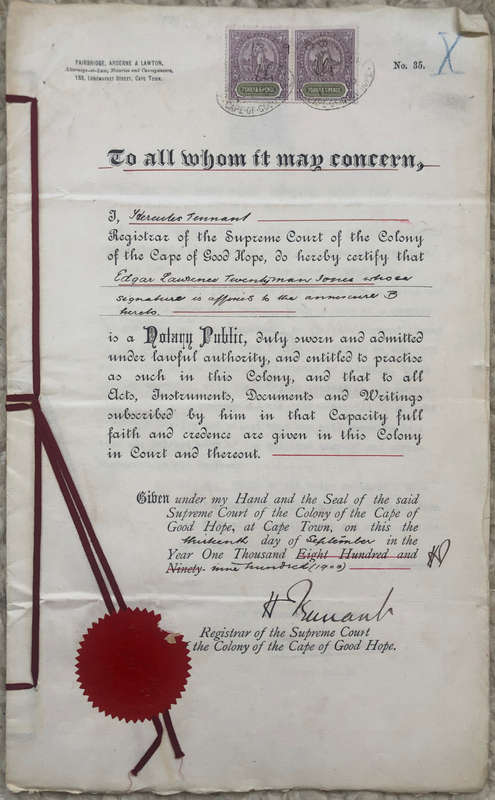 FAIRBRIDGE, ARDERNE & LAWTON,
Attorneys-at-Law, Notaries and Conveyancers,
133, LONGMARKET STREET, CAPE TOWN.
No. 35.
X
CAPE-OF-GOOD
To all whom it may concern,
I, Hercules Tennant
Registrar of the Supreme Court of the Colony
of the Cape of Good Hope, do hereby certify that
Edgar Lawrence Twentyman Jones whose
signature is affixed to the annexure B
hereto
is a Notary Public, duly sworn and admitted
under lawful authority, and entitled to practise
as such in this Colony, and that to all
Acts, Instruments, Documents and Writings
subscribed by him in that Capacity full
faith and credence are given in this Colony
in Court and thereout.
Given under my Hand and the Seal of the said
Supreme Court of the Colony of the Cape of
Good Hope, at Cape Town, on this the
thirteenth day of September in the
Year One Thousand Eight Hundred and
Ninety. nine hundred (1900)
H Tennant
Registrar of the Supreme Court
the Colony of the Cape of Good Hope.